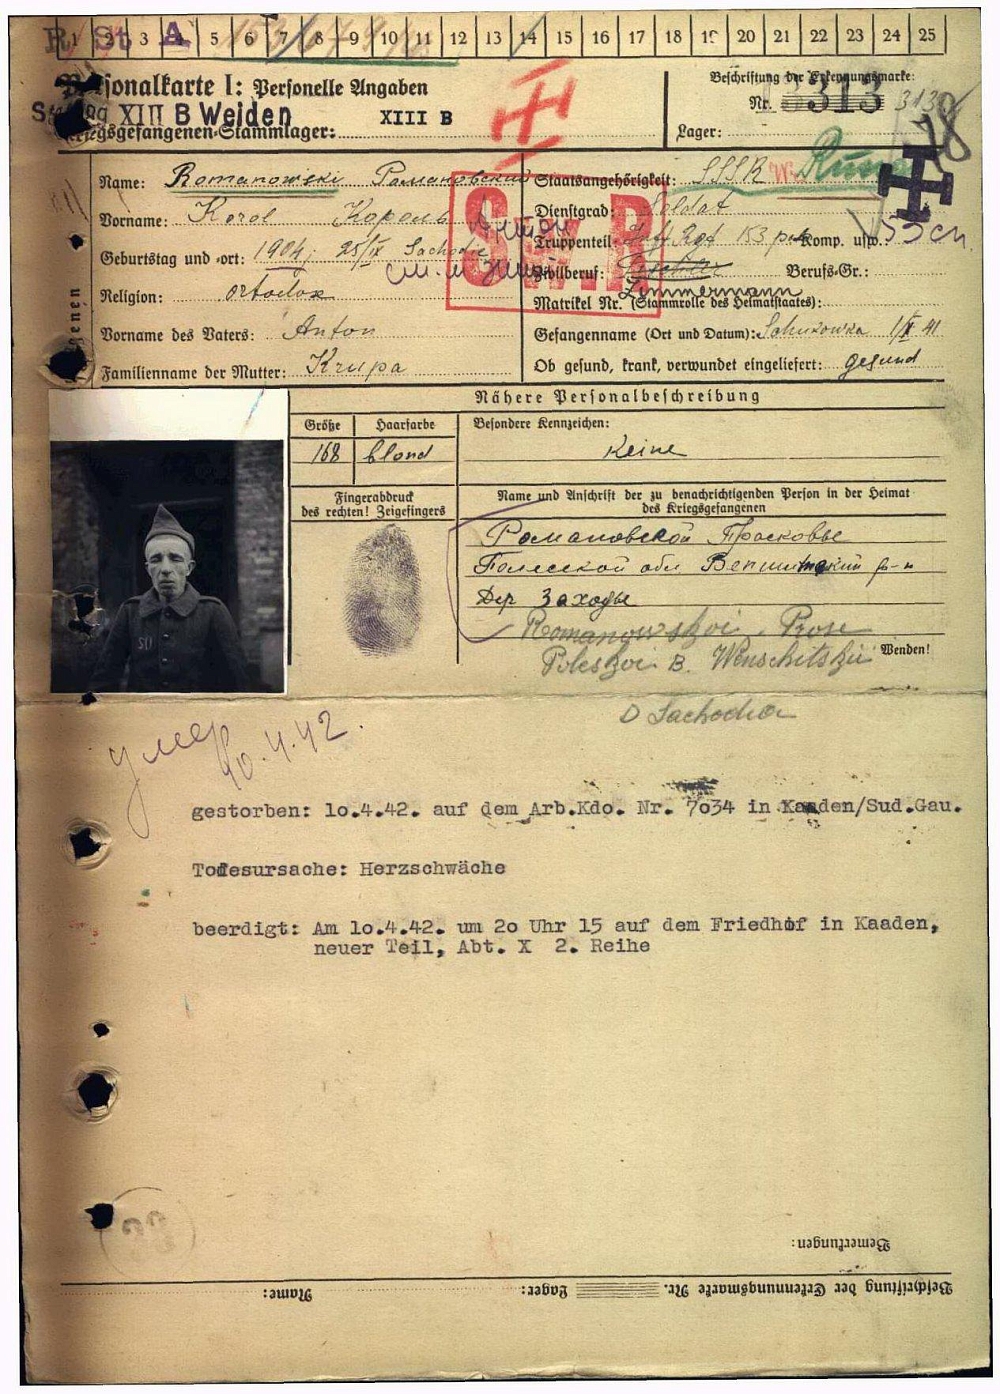 1 2 3 4 5 6 7 8 9 10 11 12 13 14 15 16 17 18 19 20 21 22 23 24 25
Personalkarte I: Personelle Angaben
Stalag XIII B Weiden XIII B
Kriegsgefangenen-Stammlager:
Beschriftung der Erkennungsmarke:
Nr. 3313
Lager:
Name: Romanowski Романовский
Vorname: Korol Король Антон
Geburtstag und -ort: 1904, 25/IX Sachodie
Religion: ortodox
Vorname des Vaters: Anton
Familienname der Mutter: Krupa
Staatsangehörigkeit: SSSR
Dienstgrad: Soldat
Truppenteil: Inf. Rgt 153 Komp. usw.
Zivilberuf: Tischler Berufs-Gr.:
Zimmermann
Matrikel Nr. (Stammrolle des Heimatstaates):
Gefangenname (Ort und Datum): 41
Ob gesund, krank, verwundet eingeliefert: gesund
S.W.P
Nähere Personalbeschreibung
Größe Haarfarbe Besondere Kennzeichen:
168 blond Keine
Fingerabdruck
des rechten! Zeigefingers
Name und Anschrift der zu benachrichtigenden Person in der Heimat
des Kriegsgefangenen
Романовской Прасковье
Полесской обл р-н
Дер Заходы
Romanowskoi Prose
Poleskoi B. Wenschitskii
Wenden!
D Sachodia
умер
10.4.42.
gestorben: lo.4.42. auf dem Arb.Kdo. Nr. 7o34 in Kaaden/Sud.Gau.
Todesursache: Herzschwäche
beerdigt: Am lo.4.42. um 2o Uhr 15 auf dem Friedhof in Kaaden,
neuer Teil, Abt. X 2. Reihe
Bemerkungen:
Beschriftung der Erkennungsmarke Nr. Lager: Name: